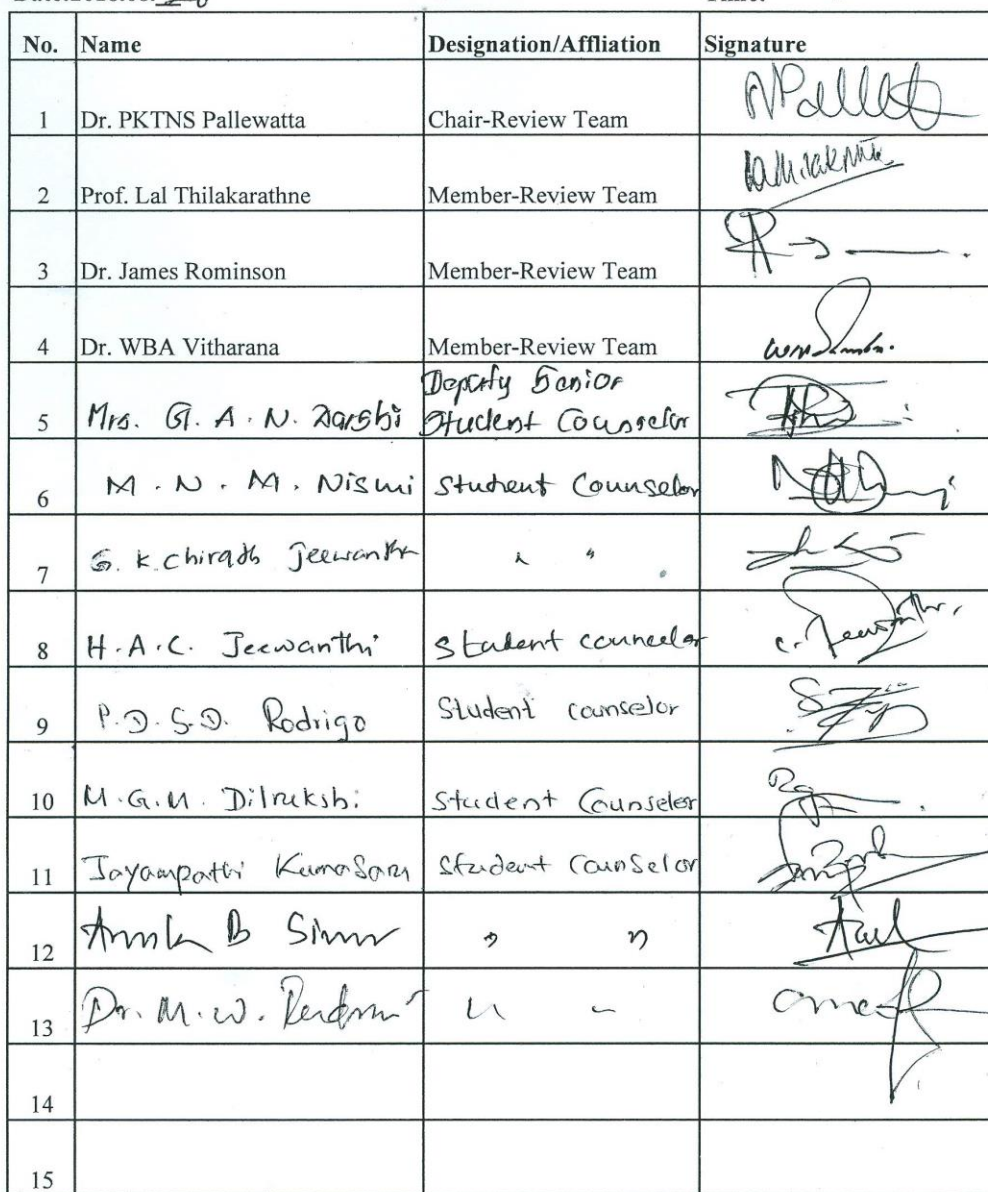 No. Name Designation/Affliation Signature
1 Dr. PKTNS Pallewatta Chair-Review Team
2 Prof. Lal Thilakarathne Member-Review Team
3 Dr. James Rominson Member-Review Team
4 Dr. WBA Vitharana Member-Review Team
Deputy Senior
5 Mrs. G. A. N. Darshi Student Counselor
6 M. N. M. Nismi Student Counselor
7 G. K. Chirath Jeewantha " "
8 H.A.C. Jeewanthi Student counselor
9 P.D.S.D. Rodrigo Student counselor
10 M.G.M. Dilrukshi Student Counselor
11 Jayampathi Kumarasm Student Counselor
12 B " "
13 Dr. M. W. " "
14
15